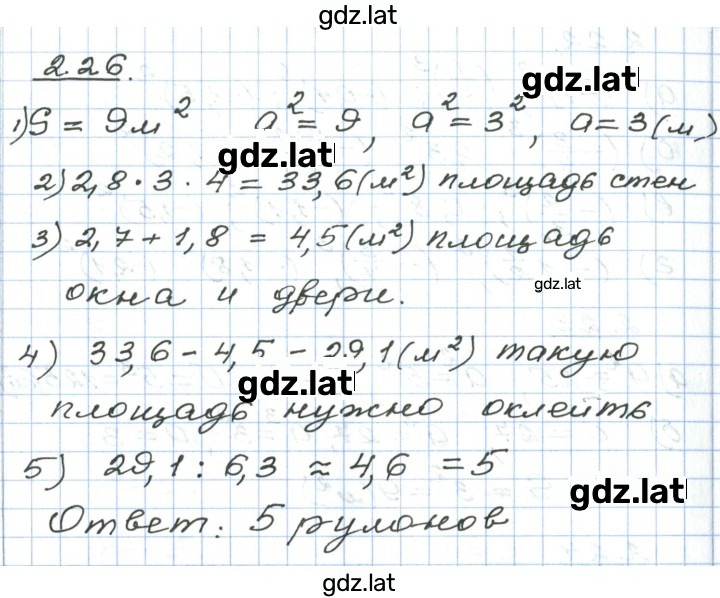 gdz.lat
2.26.
gdz.lat
1) S = 9 м² a² = 9, a² = 3², a = 3 (м)
gdz.lat
2) 2,8 · 3 · 4 = 33,6 (м²) площадь стен
3) 2,7 + 1,8 = 4,5 (м²) площадь
gdz.lat
окна и двери.
4) 33,6 - 4,5 - 29,1 (м²) такую
gdz.lat
площадь нужно оклеить
5) 29,1 : 6,3 ≈ 4,6 = 5
gdz.lat
Ответ: 5 рулонов
gdz.lat